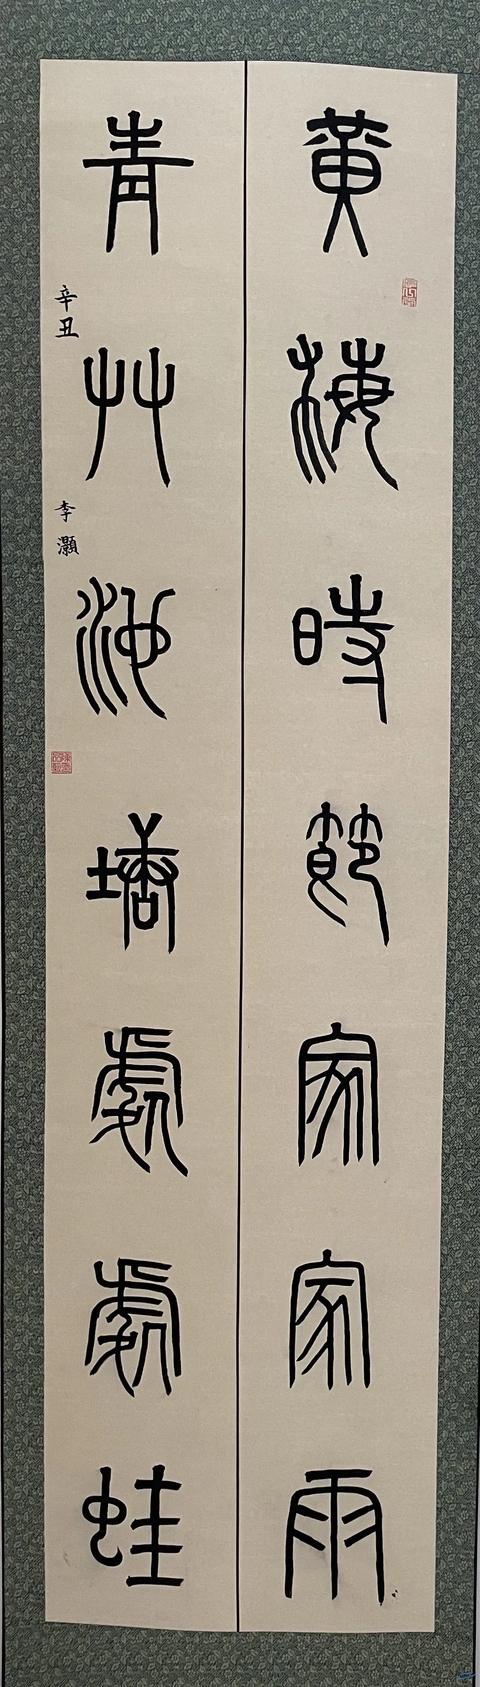 黃梅時節家家雨
青艸池塘處處蛙
辛丑 李灝